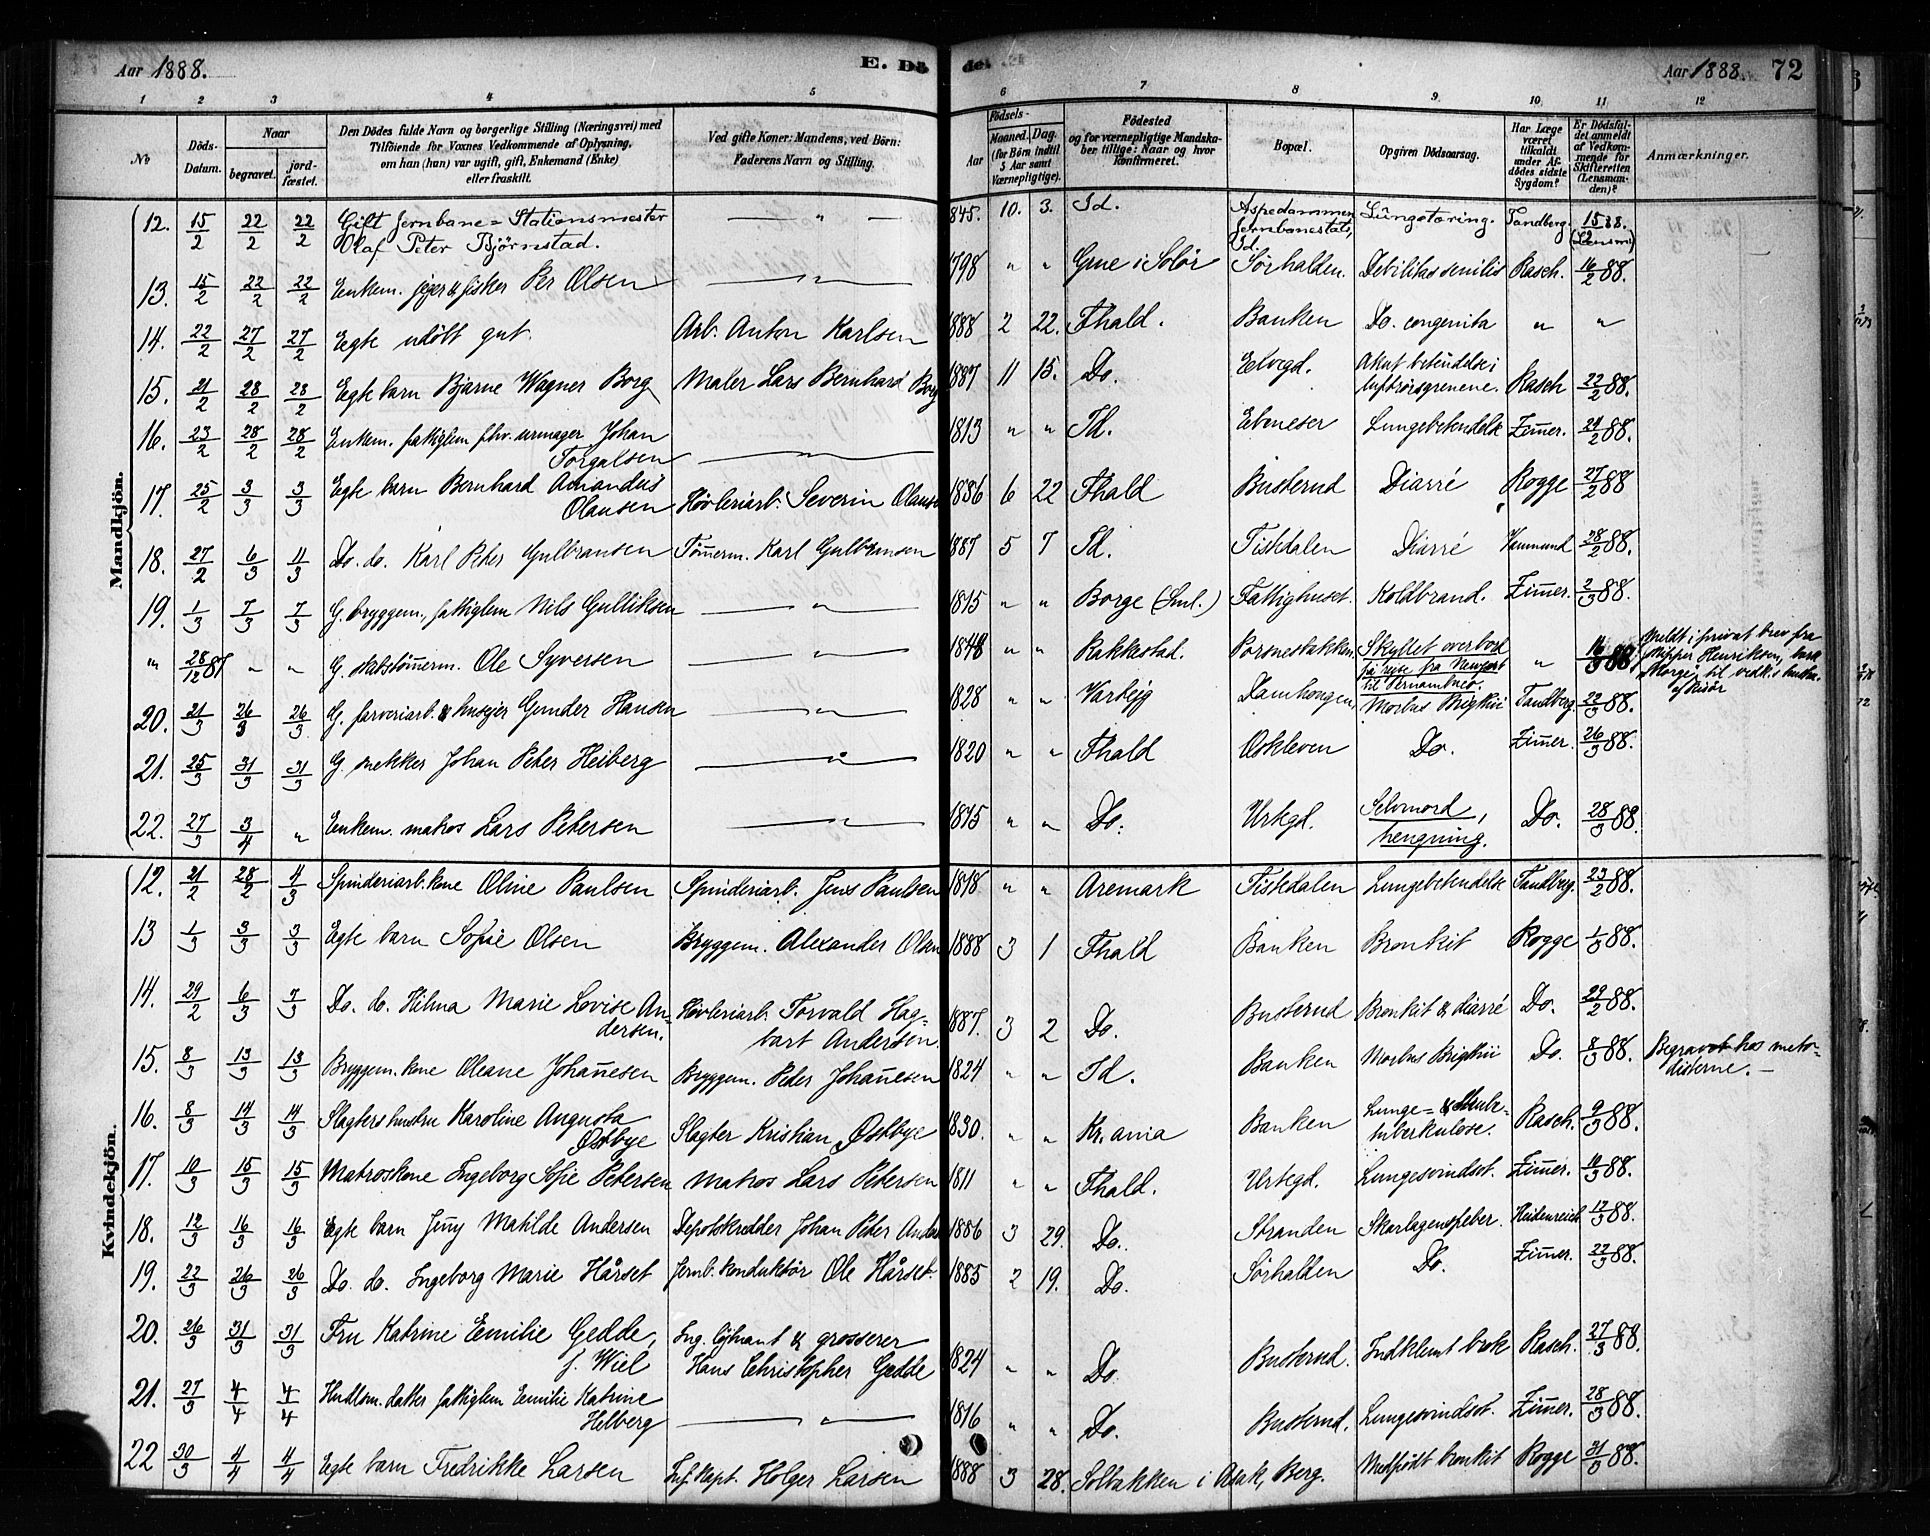 Aar 1888. E. Dö
de. Aar 1888. 72
1 2 3 4 5 6 7 8 9 10 11 12
No
Döds-Datum.
Naar
begravet.
jord-fæstet.
Den Dödes fulde Navn og borgerlige Stilling (Næringsvei) med
Tilföiende for Voxnes Vedkommende af Oplysning,
om han (hun) var ugift, gift, Enkemand (Enke)
eller fraskilt.
Ved gifte Koner: Mandens, ved Börn:
Faderens Navn og Stilling.
Födsels-
Aar
Maaned. Dag.
(for Börn indtil
5 Aar samt
Værnepligtige).
Födested
og for værnepligtige Mandska-
ber tillige: Naar og hvor
konfirmeret.
Bopæl.
Opgiven Dödsaarsag.
Har Læge
været
tilkaldt
under Af-
dödes sidste
Sygdom?
Er Dödsfal-
det anmeldt
af Vedkom-
mende for
Skifteretten
(Lensman-
den)?
Anmærkninger.
Mandkjön.
12. 15/2 22/2 22/2 Gift Jernbane=Stationsmester Olaf Peter Bjørnstad. — " — 845. 10. 3. Id. Aspedammen Jernbanestats, Id. Lungetæring. Tandberg. 15/2 88. (Lensm)
13. 15/2 22/2 22/2 Enkem. jeger & fisker Per Olsen — " — 1798 " " Grue i Solør Sørhalden. Debilitas senilis Rasch. 16/2 88.
14. 22/2 27/2 27/2 Egte udøbt gut. Arb. Anton Karlsen 1888 2 22. Fhald. Banken Do. congenita " "
15. 21/2 28/2 28/2 Egte barn Bjarne Wagner Borg Maler Lars Bernhard Borg 1887 11 15. Do. Eelvegd. Akut betendelse i luftrørsgrenene. Rasch 22/2 88.
16. 23/2 28/2 28/2 Enkem. fattiglem fhv. urmager Johan Torgalsen — " — 1813 " " Id. Ebeneser Lungebetendelse Zimer. 24/2 88.
17. 25/2 3/3 3/3 Egte barn Bernhard Amandus Olausen Høvleriarb. Severin Olaus 1886 6 22 Fhald Busterud Diarré Rogge 27/2 88
18. 27/2 6/3 11/3 Do. do. Karl Peter Gulbransen Tømerm. Karl Gulbransen 1887 5 7 Id. Tistedalen Diarré 28/2 88.
19. 1/3 7/3 7/3 G. bryggem., fattiglem Nils Gulliksen — " — 1815 " " Borge (Sml.) Fattighuset. Koldbrand. Zimer. 2/3 88.
" 28/12 87 " " G. skibstømerm. Ole Syversen — " — 1848 " " Rakkestad. Porsnesbakken. Skyllet overbord på reise fra Newport til Pernambuco. " 16/3 88. Meldt i privat brev fra skipper Henriksen, bark "Norge", til vedk.s hustru.
20. 21/3 26/3 26/3 G. farveriarb. & huseier Gunder Hansen — " — 1828 " " Varteig Damhougen, Morbus Brigthii Tandberg. 22/3 88.
21. 25/3 31/3 31/3 G. snekker Johan Peter Heiberg — " — 1820 " " Fhald Oskleven Do. Zimer. 26/3 88.
22. 27/3 3/4 " Enkem. matros Lars Petersen — " — 1815 " " Do. Urtegd. Selvmord, hengning. Do. 28/3 88.
Kvindekjön.
12. 21/2 28/2 4/3 Spinderiarb. kone Oline Paulsen Spinderiarb. Jens Paulsen 1818 " " Aremark Tistedalen Lungebetendelse Tandberg. 23/2 88.
13 1/3 3/3 3/3 Egte barn Sofie Olsen Bryggem. Alexander Olsen 1888 3 1 Fhald Banken Bronkit Rogge 1/3 88.
14. 29/2 6/3 7/3 Do. do. Hilma Marie Lovise Andersen. Høvleriarb. Torvald Hagbart Andersen. 1887. 3 2 Do. Busterud Bronkit & diarré Do. 29/2 88.
15. 8/3 13/3 13/3 Bryggem. kone Oleane Johañesen Bryggem. Peder Johañesen 1824 " " Id. Banken Morbus Brigthii Do. 8/3 88. Begravet hos metodisterne. —
16. 8/3 14/3 14/3 Slagters hustru Karoline Augusta Østbye Slagter Kristian Østbye 1830. " " Kr.ania Banken Lunge= & tuberkulose. Rasch. 9/3 88.
17. 10/3 15/3 15/3 Matroskone Ingeborg Sofie Petersen Matros Lars Petersen 1811 " " Fhald. Urtegd. Lungesvindsot. Zimer. 10/3 88.
18. 12/3 16/3 16/3 Egte barn Jeñy Matilde Andersen Depotskredder Johan Peter Anders 1886 3 29. Do. Stranden Skarlagensfeber. Heidenreich 12/3 88.
19. 22/3 26/3 26/3 Do. do. Ingeborg Marie Hårset Jernb. konduktør Ole Hårset. 1885 2 19. Do. Sørhalden Do. Zimer. 22/3 88.
20. 26/3 31/3 31/3 Fru Katrine Emilie Gedde, f. Wiel Ing. løjtnant & grosserer Hans Christopher Gedde 1824 " " Do. Busterud. Indklemt brok Rasch. 27/3 88.
21. 27/3 4/4 4/4 datter fattiglem Emilie Katrine Helberg — " — 1816 " " Do. Busterud. Lungesvindsot. Zimer. 28/3 88.
22 30/3 4/4 4/4 Egte barn Fredrikke Larsen Inf. kapt. Holger Larsen 1888 3 28. Solbakken i Asak, Berg. Medfødt bronkit Rogge 31/3 88.